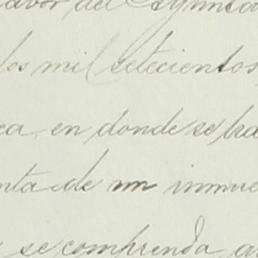 favor del Ayunta
dos mil setecientos,
ea, en donde se ha
nta de un inmue
se comprenda a